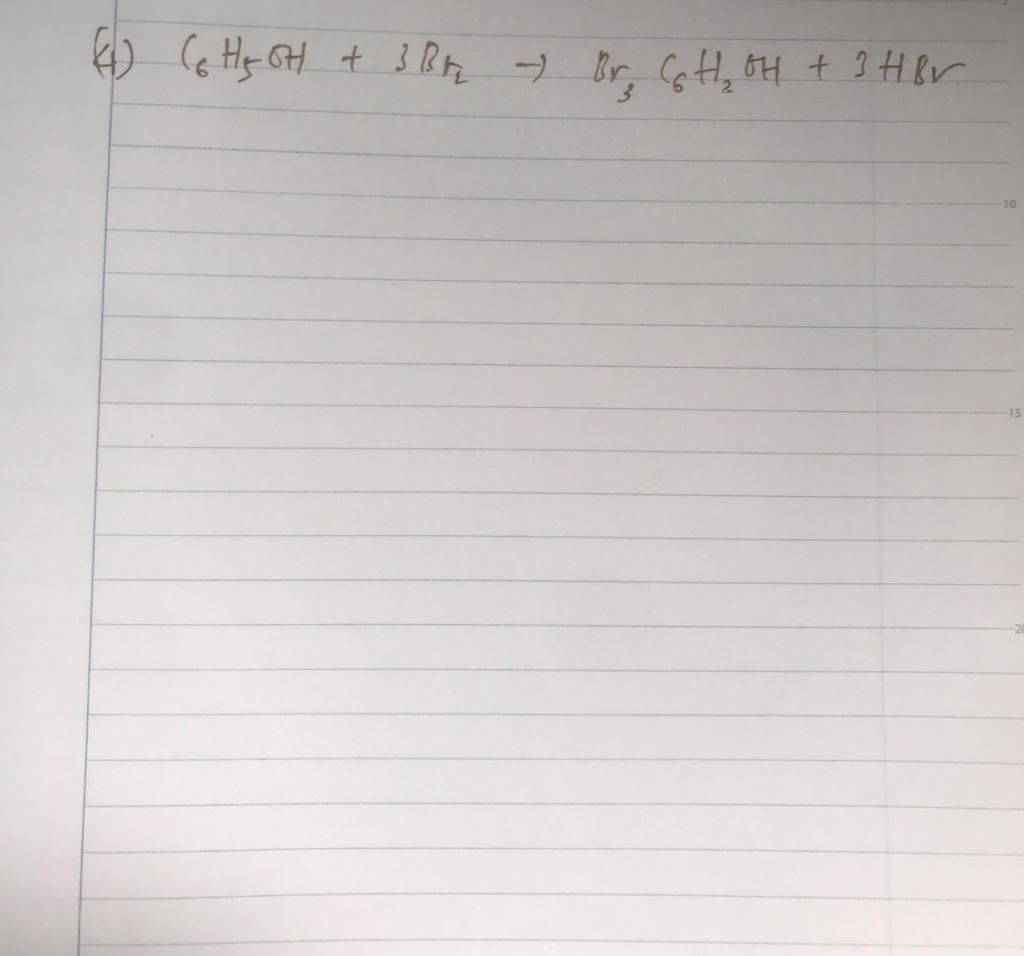 (4) C₆H₅OH + 3Br₂ → Br₃C₆H₂OH + 3HBr
10
15
20